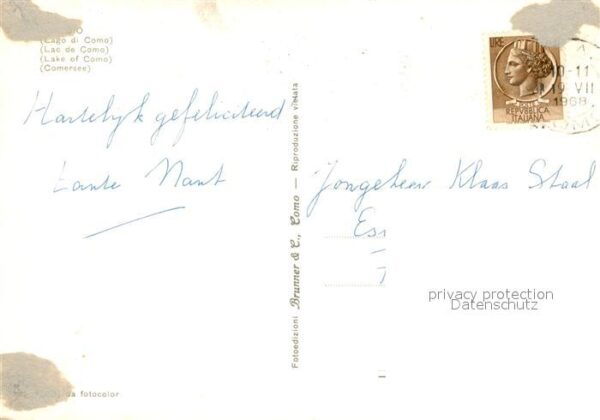 (Lago di Como)
(Lac de Como)
(Lake of Como)
(Comersee)
Hartelijk gefeliciteerd
tante Nant
Fotoedizioni Brunner & C., Como — Riproduzione vietata
LIRE
REPVBBLICA
ITALIANA
10-11
19 VII
1968
Jongeheer Klaas Staal
privacy protection
Datenschutz
da fotocolor